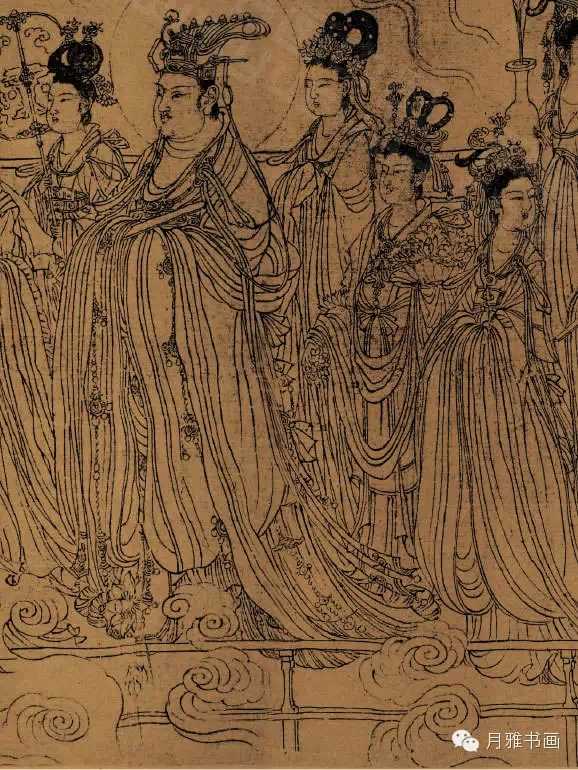 月雅书画